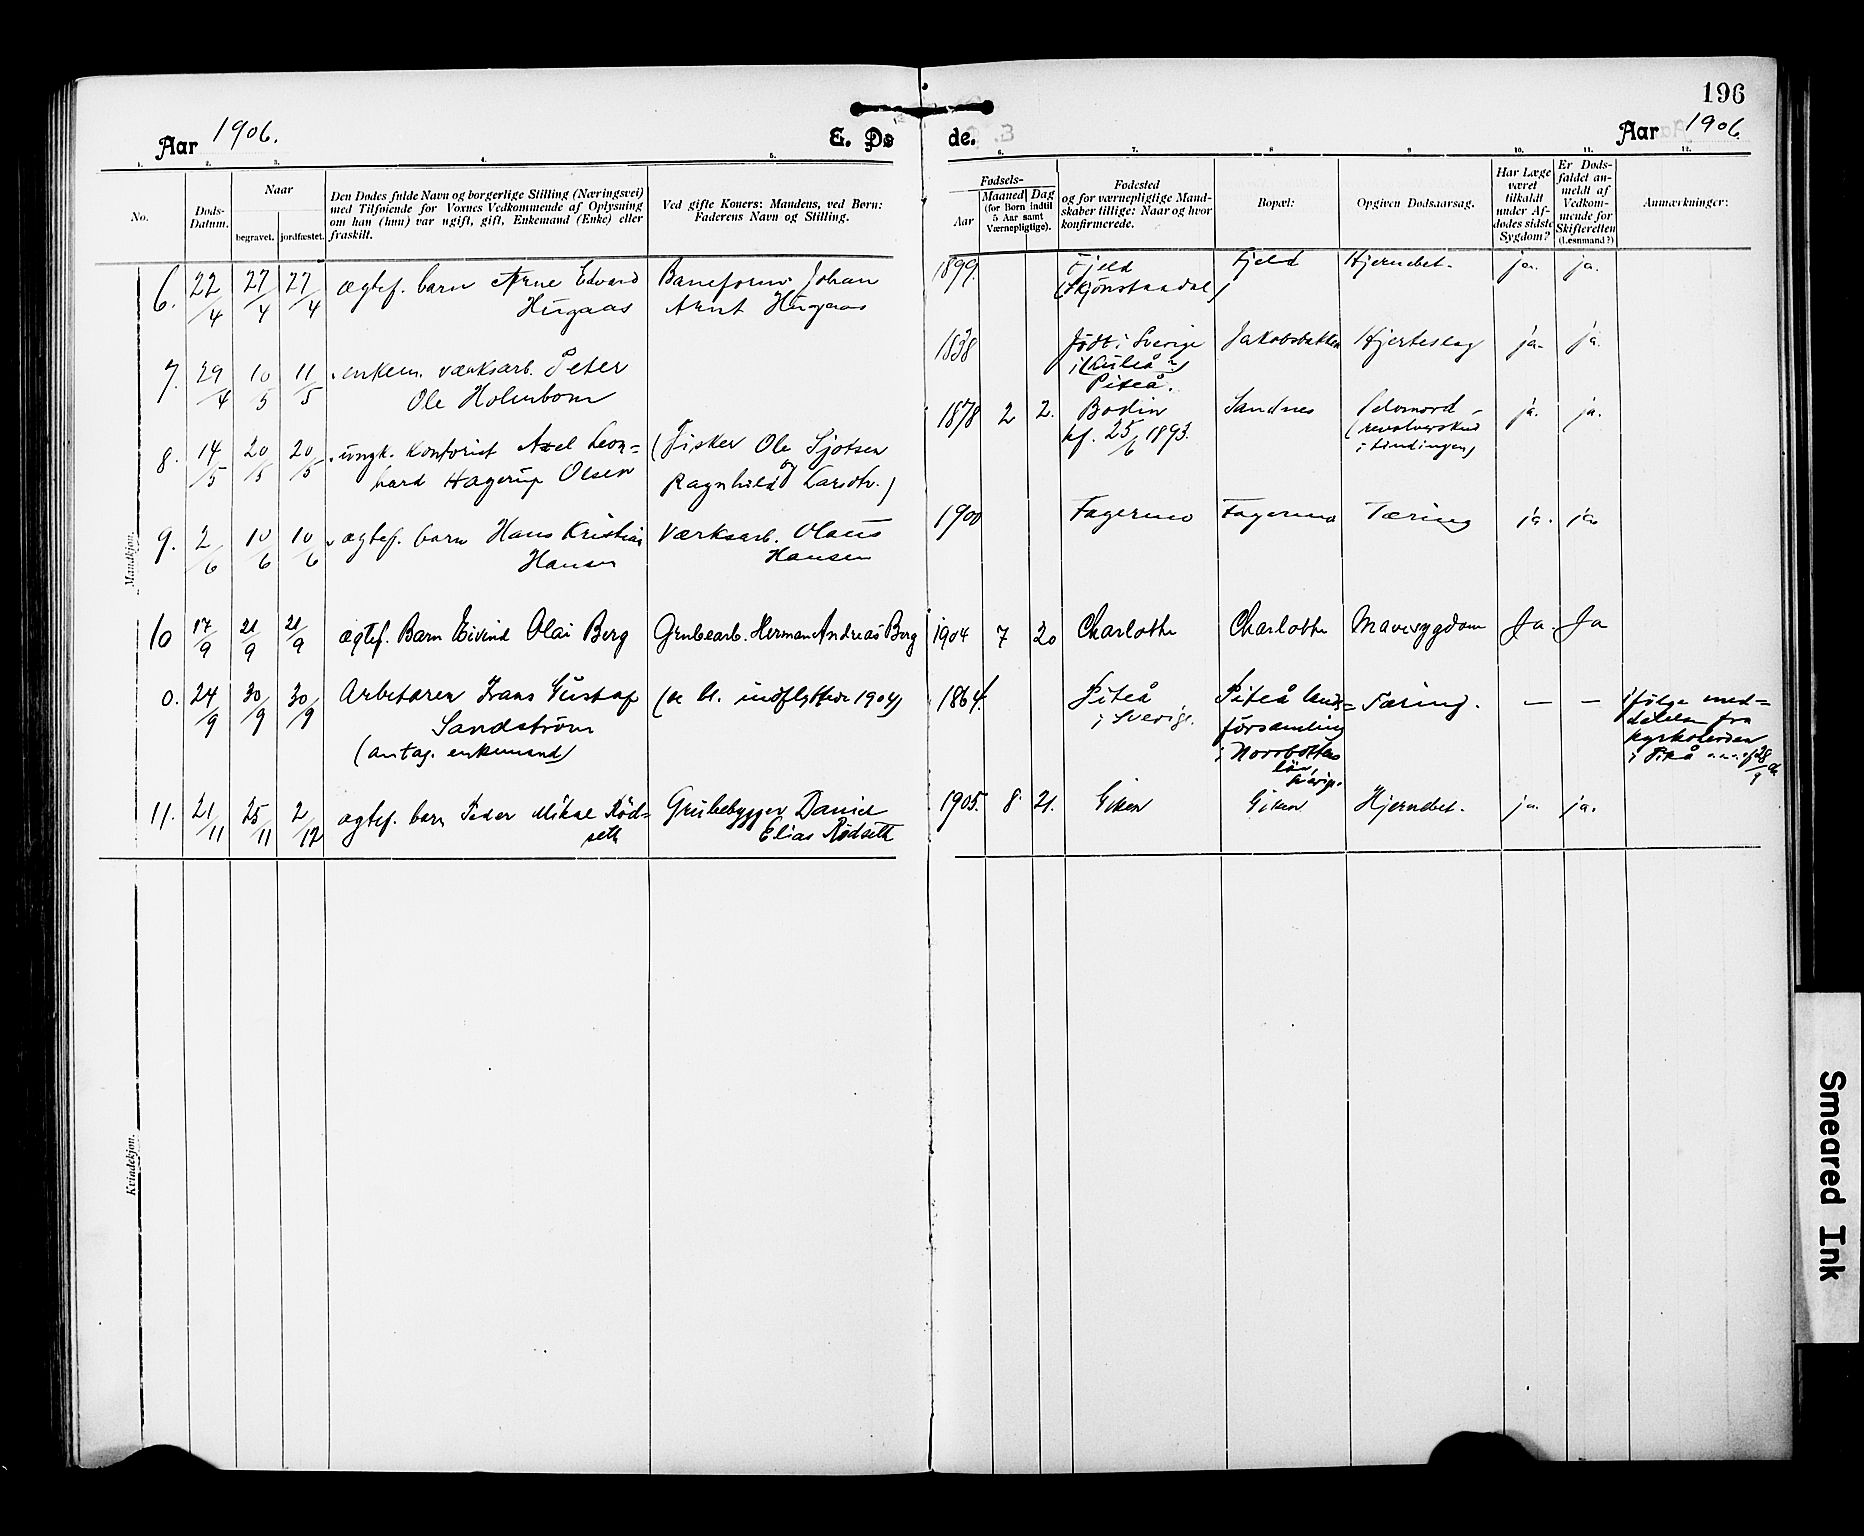 196
Aar 1906.
E. Dø de.
Aar 1906
1. 2. 3. 4. 5. 6. 7. 8 9 10. 11. 12.
No.
Døds-
Datum.
Naar
begravet. jordfæstet.
Den Dødes fulde Navn og borgerlige Stilling (Næringsvei)
med Tilføiende for Voxnes Vedkommende af Oplysning
om han (hun) var ugift, gift, Enkemand (Enke) eller
fraskilt.
Ved gifte Koners: Mandens, ved Børn:
Faderens Navn og Stilling.
Fødsels-
Aar
Maaned Dag
(for Børn indtil
5 Aar samt
Værnepligtige).
Fødested
og for værnepligtige Mand-
skaber tillige: Naar og hvor
konfirmerede.
Bopæl:
Opgiven Dødsaarsag.
Har Læge
været
tilkaldt
under Af-
dødes sidste
Sygdom?
Er Døds-
faldet an-
meldt af
Vedkom-
mende for
Skifteretten
(Lensmand?)
Anmærkninger:
Mandkjøn.
6. 22/4 27/4 27/4 ægtef. barn Arne Edvard Baneform. Johan 1899. Fjeld Fjeld Hjernebet. ja. ja.
Hugaas Arnt Hugaas (Skjønstaadal)
7. 29/4 10/5 11/5 enkem. værksarb. Peter 1838 født i Sverige Jakobsbakken Hjerteslag ja. ja.
Ole Holmbom i (Luleå ?)
Piteå.
8. 14/5 20/5 20/5 ungk. kontorist Axel Leon= (Fisker Ole Sjøtsen 1878 2 2. Bodin Sandnes Selvmord -
hard Hagerup Olsen og Ragnhild Larsdtr.) kf. 25/6 1893. (revolverskud ja. ja.
i tindingen)
9. 2/6 10/6 10/6 ægtef. barn Hans Kristian Værksarb. Olaus 1900 Fagermo Fagermo Tæring ja. ja.
Hansen Hansen
10 17/9 21/9 21/9 ægtef. Barn Eivind Olai Berg Grubearb. Herman Andreas Berg 1904 7 20 Charlotta Charlotta Mavesygdom Ja. Ja
0. 24/9 30/9 30/9 Arbetaren Frans Gustaf (se bl. indflyttede 1904) 1864. Piteå Piteå lands= Tæring. — — ifølge med=
Sandström i Sverige. församling delelse fra
(antag. enkemand) i Norrbottens kyrkoherden
län, i Piteå 28/9
Sverige.
11. 21/11 25/11 2/12 ægtef. barn Peder Mikal Rød= Grubebygger Daniel 1905. 8. 21. Giken Giken Hjernebet. ja. ja.
seth Elias Rødseth
Kvindekjøn.
Smeared Ink